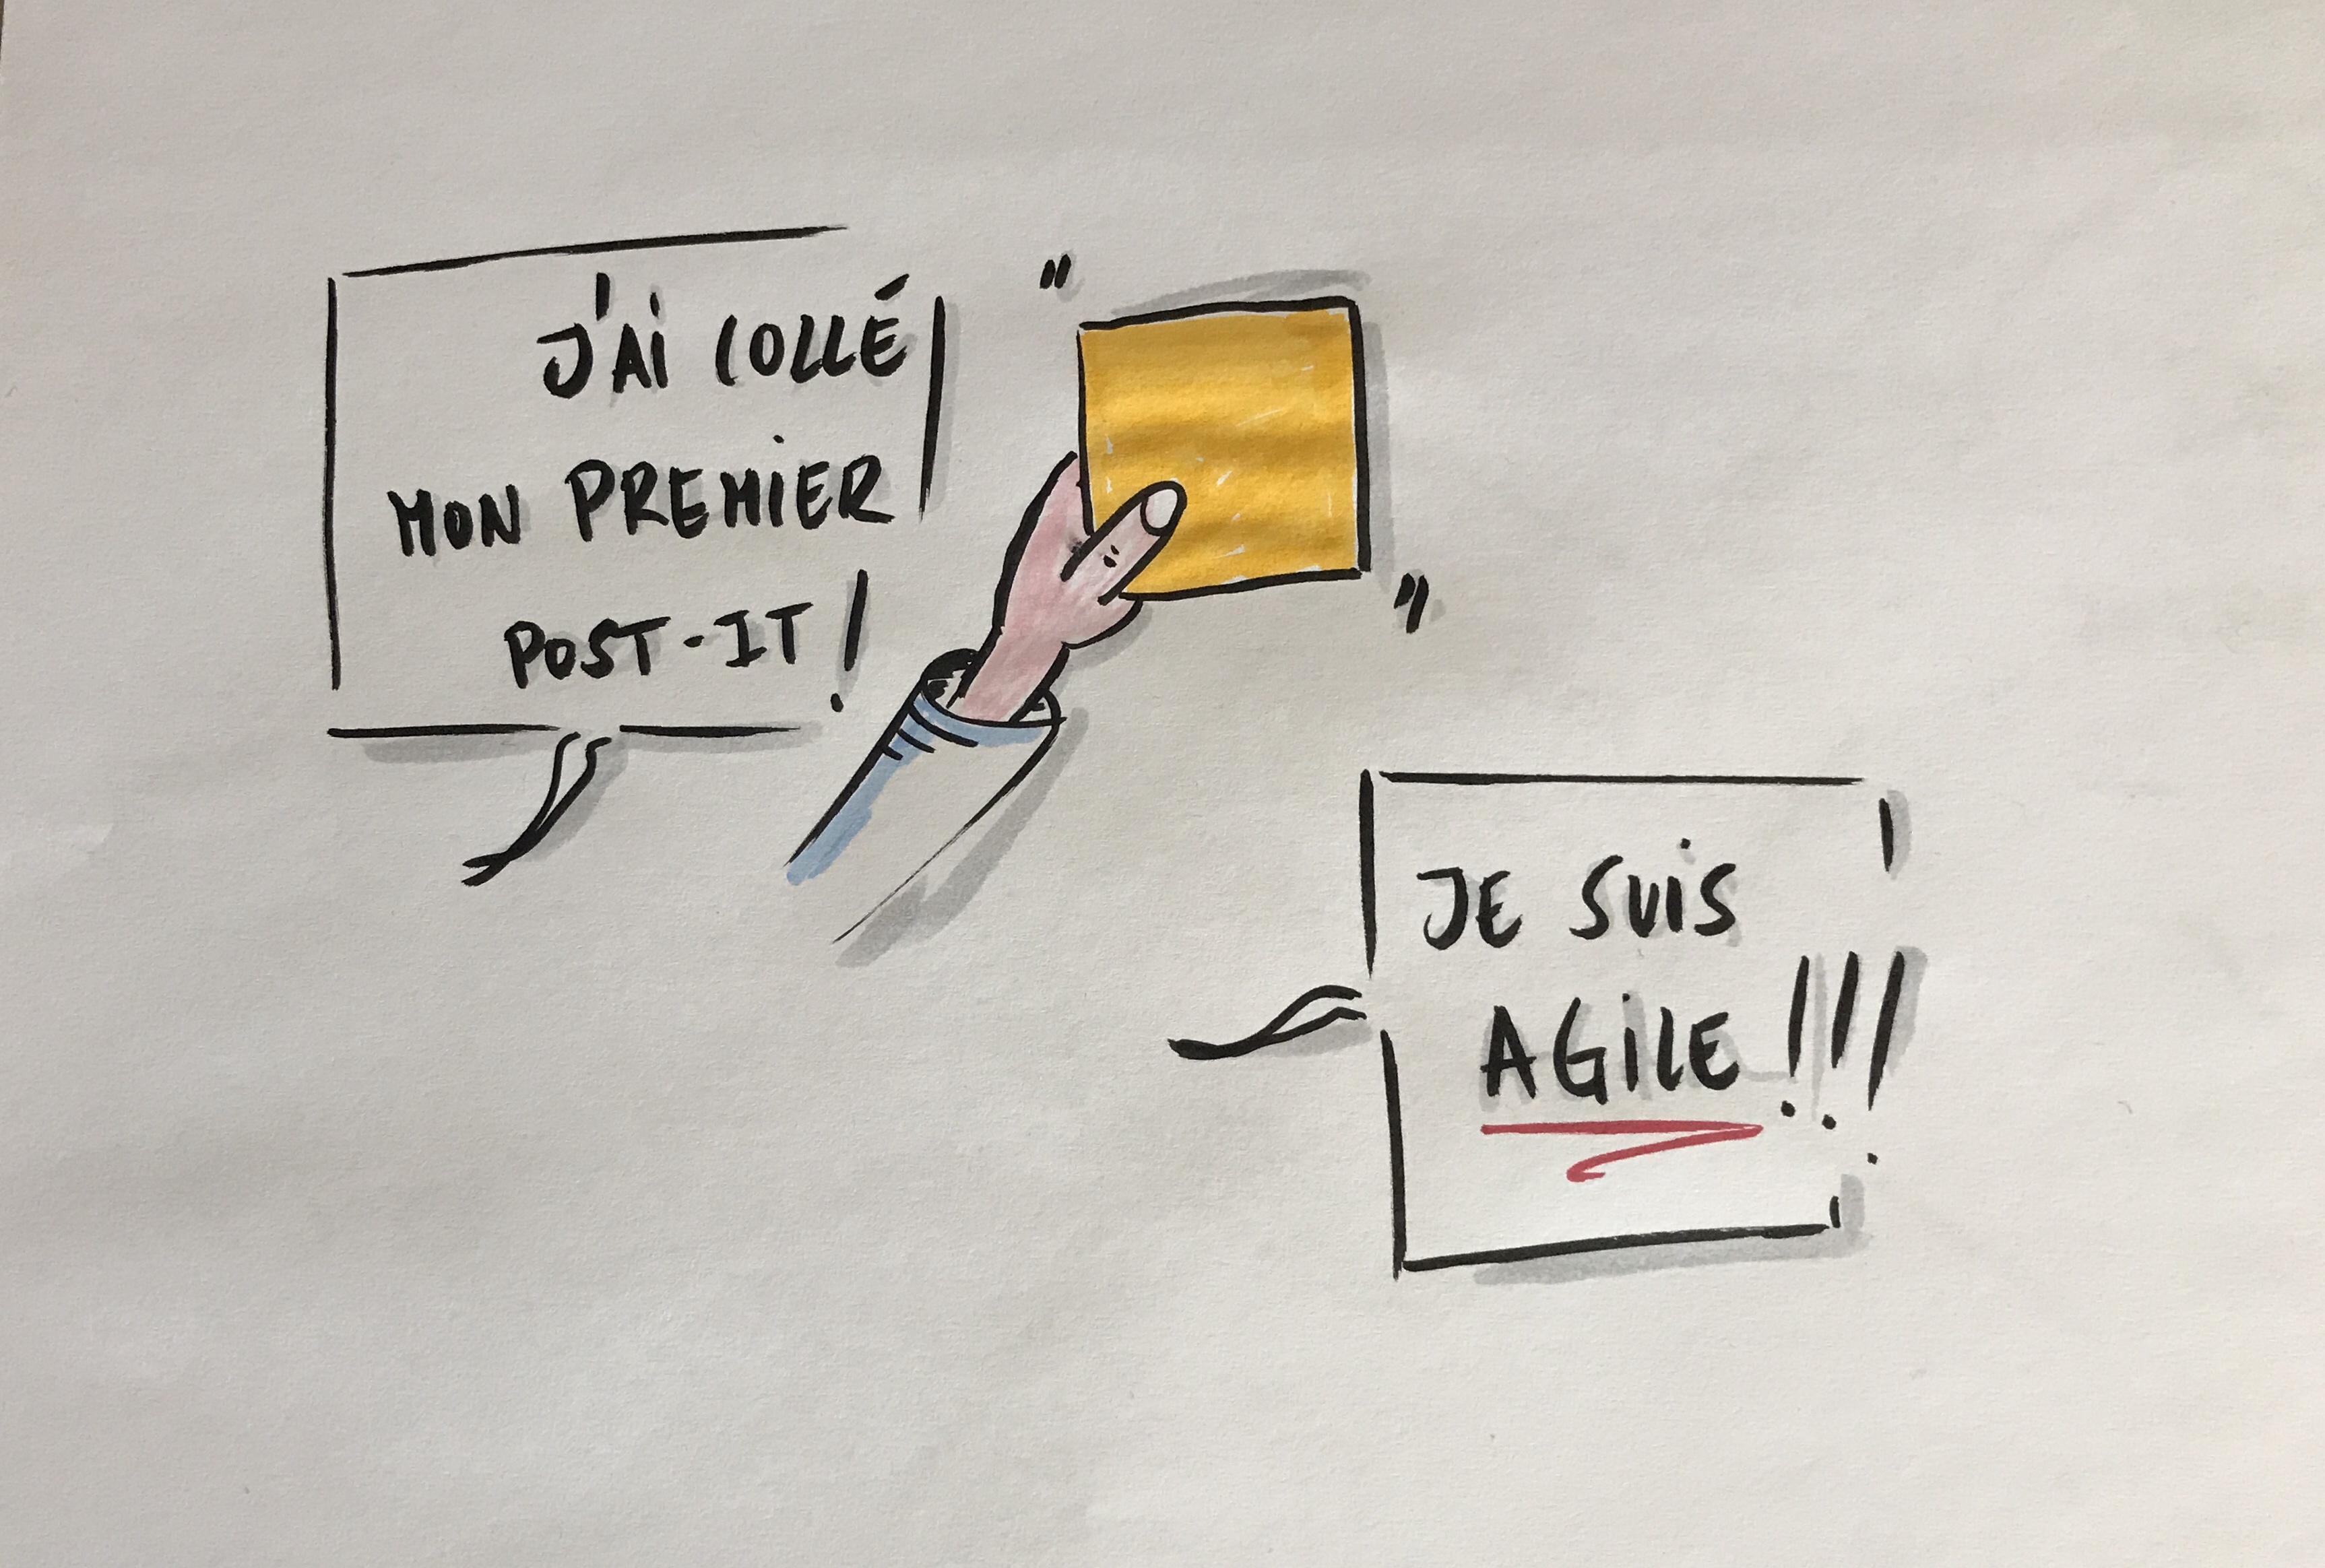 J'AI COLLÉ
MON PREMIER
POST-IT !
JE SUIS
AGILE !!!